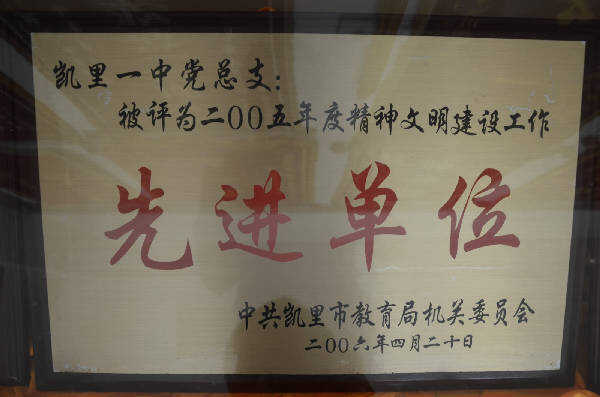 凯里一中党总支：
被评为二00五年度精神文明建设工作
先进单位
中共凯里市教育局机关委员会
二00六年四月二十日